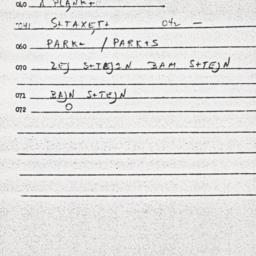 040 A PLANK+
041 S+TAXET+ 042 —
060 PARK+ / PARK+S
070 ZEJ S+TEJSN BAM S+TEJN
071 BAJN S+TEJN
072 O